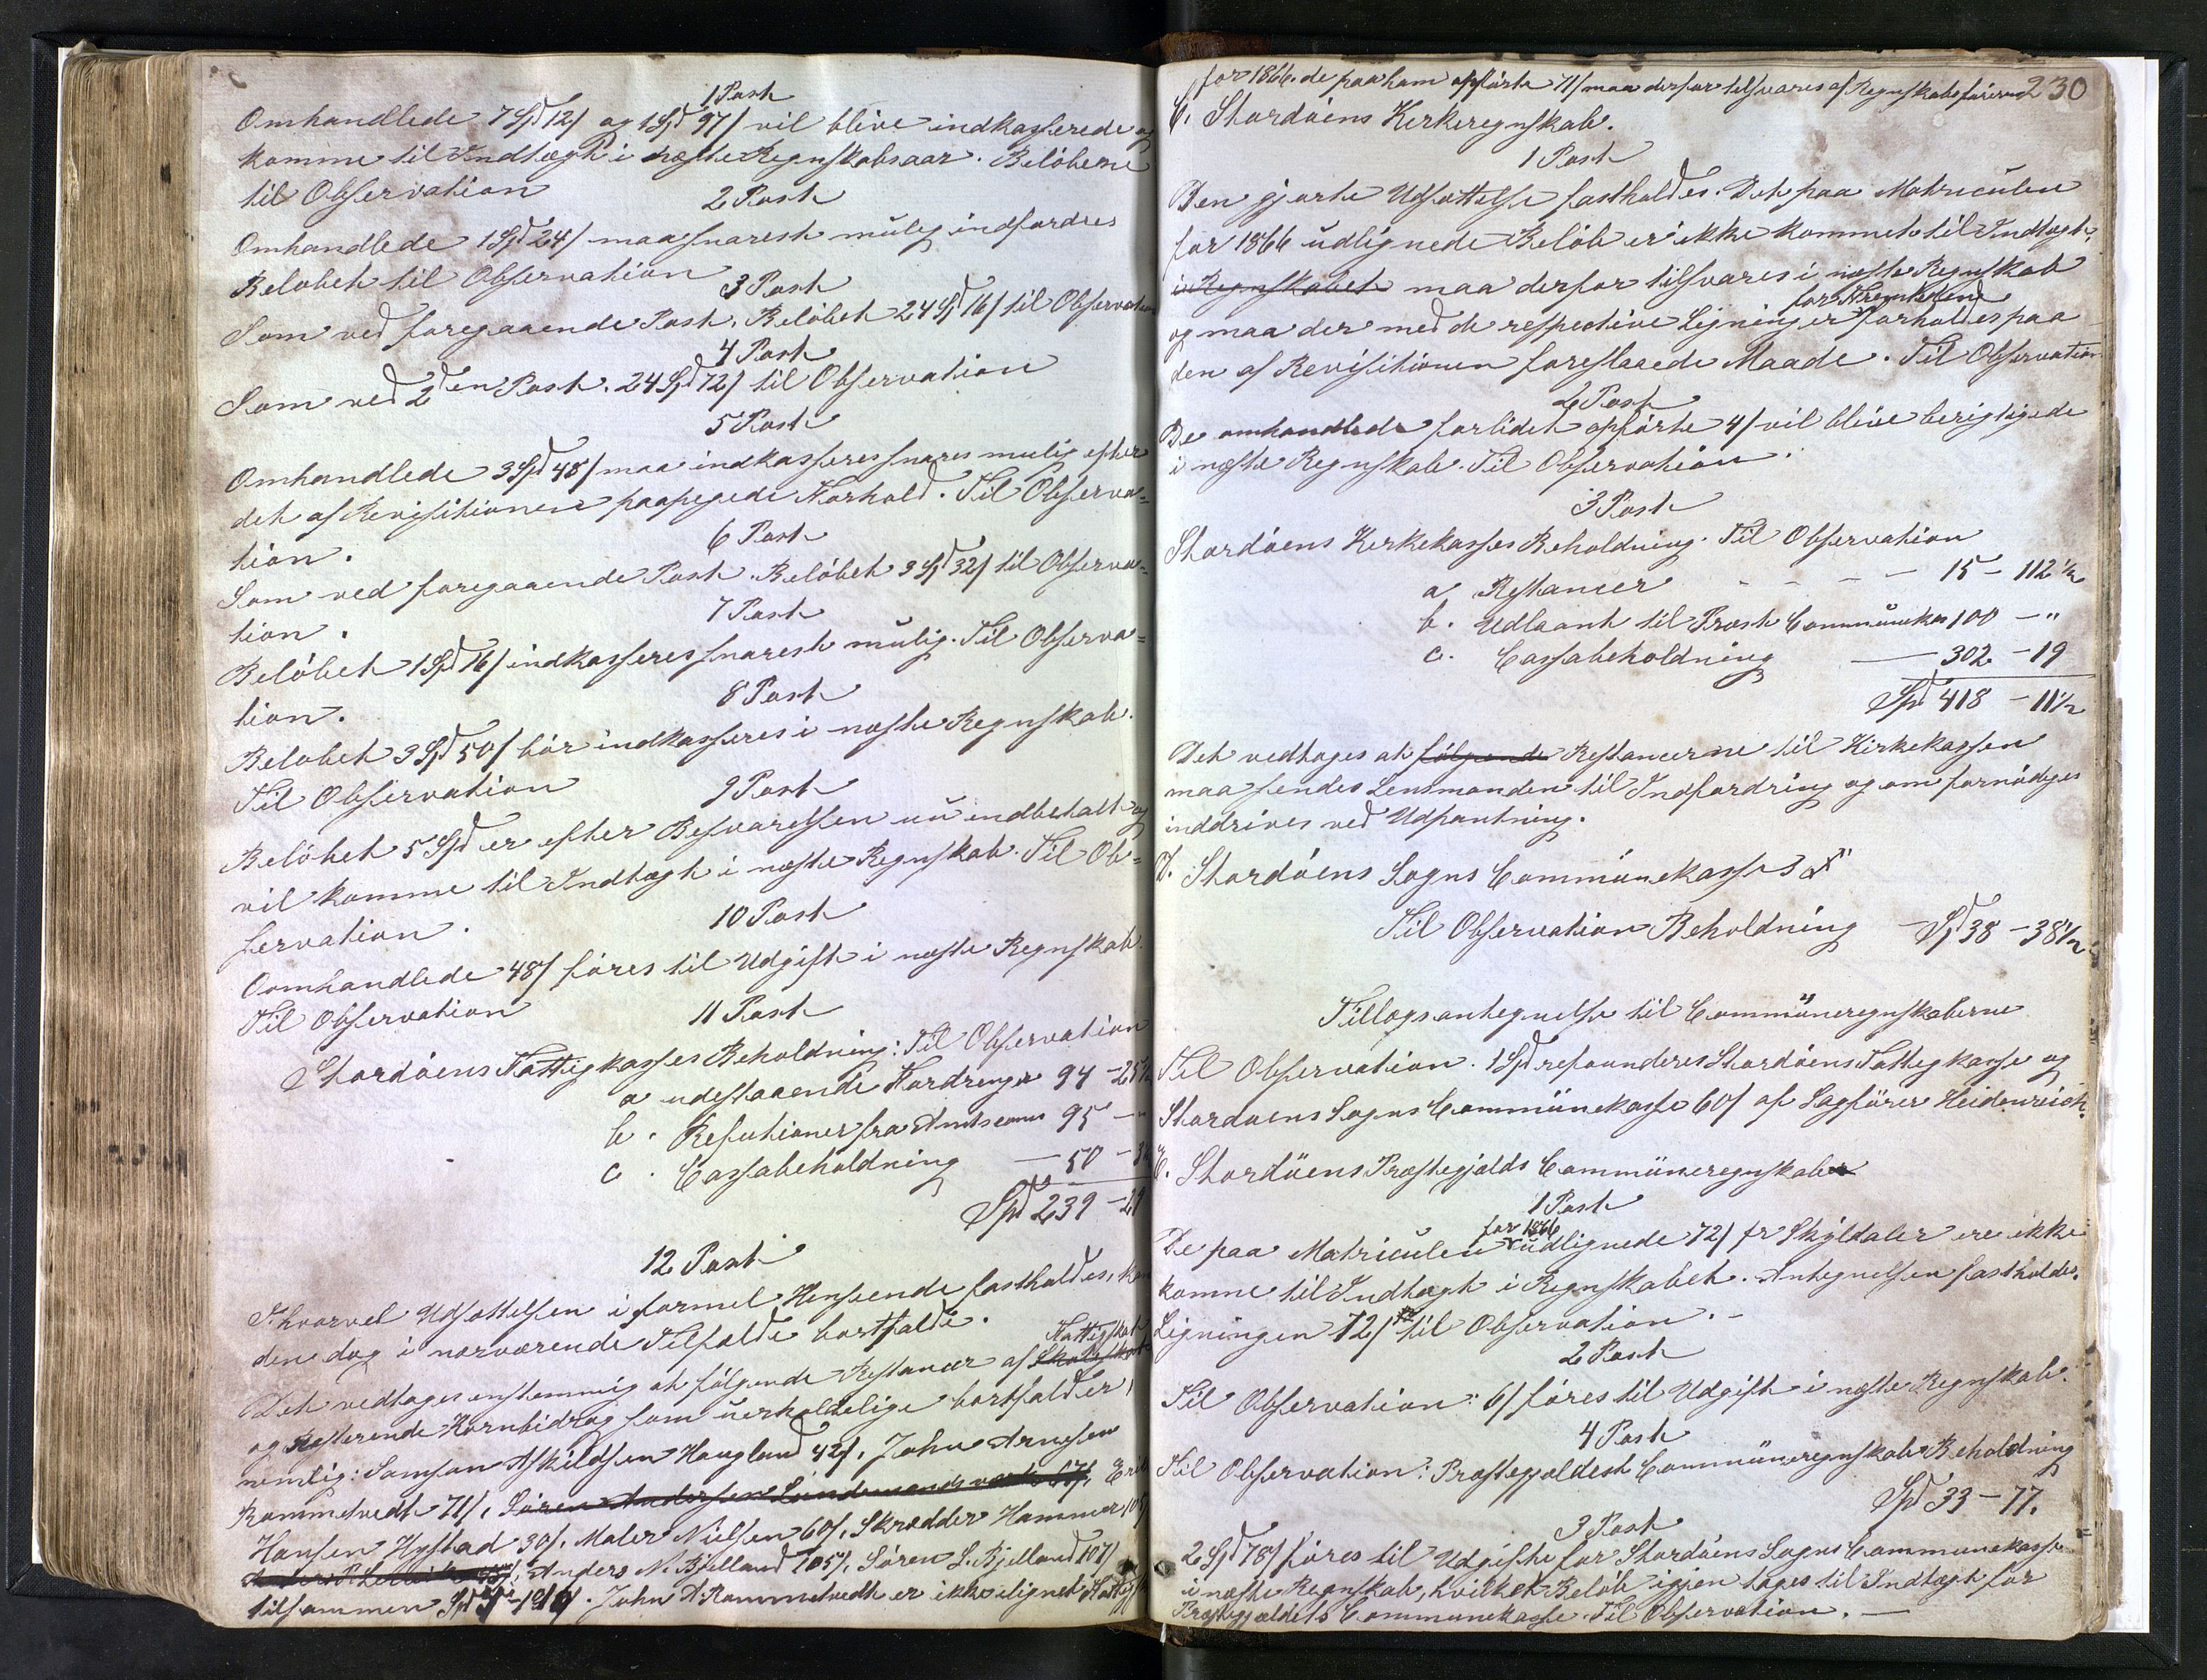 1 Post
Omhandlede 7 Spd 12 s og 1 Spd 97 s vil blive indkasserede og
komme til Indtægt i næste Regnskabsaar. Beløbene
til Observation
2 Post
Omhandlede 1 Spd 24 s maa snarest mulig indfordres
Beløbet til Observation
3 Post
Som ved foregaaende Post. Beløbet 24 Spd 16 s til Observation
4 Post
Som ved 2den Post. 24 Spd 72 s til Observation
5 Post
Omhandlede 3 Spd 48 s maa indkasseres snares mulig efter
det af Revisitionen paapegede Forhold. Til Observa=
tion.
6 Post
Som ved foregaaende Post. Beløbet 3 Spd 32 s til Observa=
tion.
7 Post
Beløbet 1 Spd 16 s indkasseres snarest mulig. Til Observa=
tion.
8 Post
Beløbet 3 Spd 50 s bør indkasseres i næste Regnskab.
Til Observation
9 Post
Beløbet 5 Spd er efter Besvarelsen nu indbetalt og
vil komme til Indtægt i næste Regnskab. Til Ob=
servation.
10 Post
Oomhandlede 48 s føres til Udgift i næste Regnskab.
Til Observation
11 Post
Stordøens Fattigkasses Beholdning: Til Observation
a udestaaende Fordringer 94 - 25 1/2
b. Refutioner fra Amtscomm 95 - "
c. Cassabeholdning — 50 -
Spd 239 - 29
12 Post
Ihvorvel Udsættelsen i formel Henseende fastholdes, kan
den dog i nærværende Tilfælde bortfalde.
Fattigskat
Det vedtages enstemmig at følgende Restancer af Skoleskat
og Resterende Kornbidrag som uerholdelige bortfalder,
nemlig: Samson Askildsen Hougland 42 s, John Arnesen
Rommetvedt 71 s, Søren Andersen Lundemandsværk 67 s, Erik
Hansen Hystad 30 s, Maler Nielsen 60 s, Skrædder Hammer 105
Anders N. Bjelland 105 s, Søren L. Bjelland 107 s
tilsammen Spd John A Rommetvedt er ikke ilignet Fattigs
for 1866. de paa ham opførte 71 s maa derfor tilsvares af Regnskabsføreren 230
C. Stordøens Kirkeregnskab.
1 Post
Den gjorte Udsættelse fastholdes. Det paa Matriculen
for 1866 udlignede Beløb er ikke kommet til Indtægt,
i Regnskabet maa derfor tilsvares i næste Regnskab
for Fremtiden
og maa der med de respective Ligninger forholdes paa
den af Revisitionen foreslaaede Maade. Til Observation
2 Post
De omhandlede forlidet opførte 4 s vil blive berigtigede
i næste Regnskab. Til Observation.
3 Post
Stordøens Kirkekasses Beholdning. Til Observation
a Restancer - - - - 15 - 112 1/2
b. Udlaant til Præst Communekas 100 - "
c. Cassabeholdning — 302 - 19
Spd 418 - 11 1/2
Det vedtages at følgende Restancerne til Kirkekassen
maa sendes Lensmanden til Indfordring og om fornødiges
inddrives ved Udpantning.
D. Stordøens Sogns Communekasse
Til Observation Beholdning - Spd 38 - 38 1/2
Tillægsantegnelse til Communeregnskaberne
Til Observation. 1 Spd refounderes Stordøens Fattigkasse og
Stordøens Sogns Communekasse 60 s af Sagfører Heidenreich.
E. Stordøens Præstegjælds Communeregnskab
1 Post
for 1866
De paa Matriculen udlignede 72 s pr Skyldaler ere ikke
komne til Indtægt i Regnskabet. Antegnelsen fastholdes.
Ligningen 72 s til Observation. -
2 Post
Til Observation: 6 s føres til Udgift i næste Regnskab.
4 Post
Til Observation: Præstegjældest Communeregnskabs Beholdning
Spd 33 - 77.
3 Post
2 Spd 78 s føres til Udgifte for Stordøens Sogns Communekasse
i næste Regnskab, hvilket Beløb igjen tages til Indtægt for
Præstegjældets Communekasse. Til Observation. —